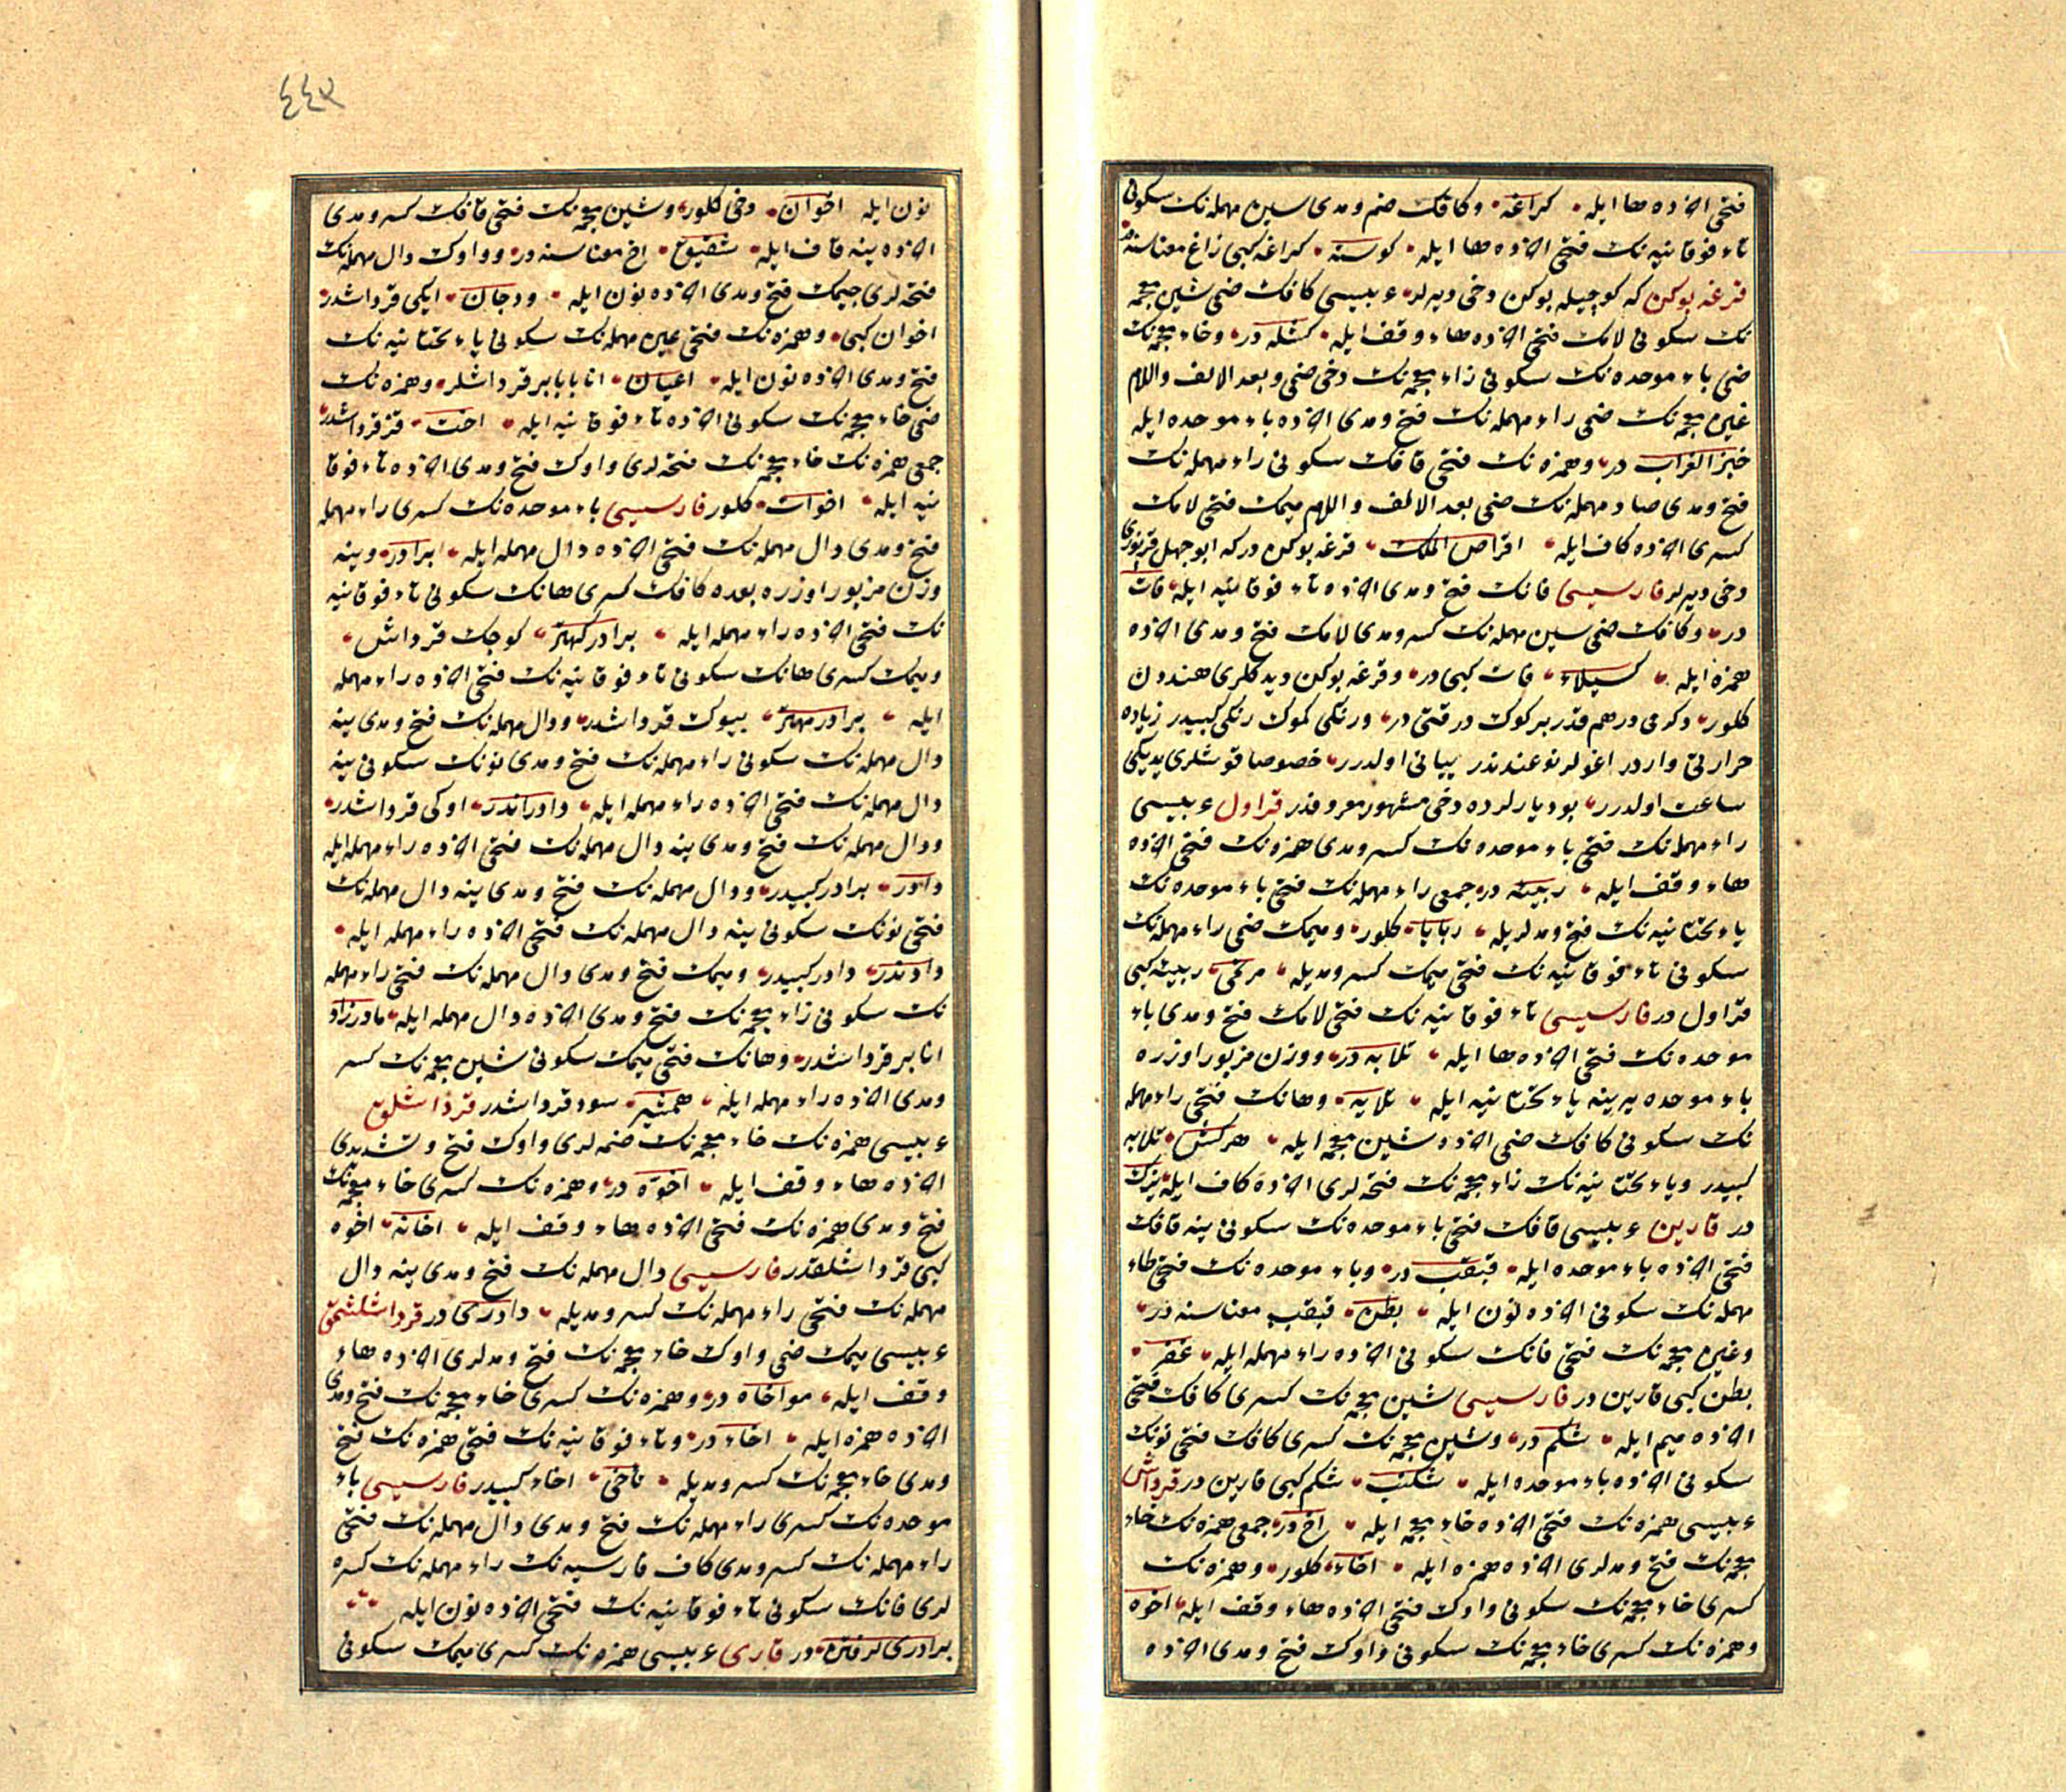 فتحی اخرنده ها ایله کراغه و کافک ضم و مدی سین مهمله نک سکونی
تاء فوقانیه نک فتحی اخرنده ها ایله کوسته کراغه کبی زاغ معناسنه در
قرغه بوکن که کوچیله بوکن دخی دیرلر عربیسی کافک ضمی شین معجمه
نک سکونی لامک فتحی اخرنده هاء وقف ایله کشله در و خاء معجمه نک
ضمی باء موحده نک سکونی زاء معجمه نک دخی ضمی و بعد الالف واللام
غین معجمه نک ضمی راء مهمله نک فتح و مدی اخرنده باء موحده ایله
خبز الغراب در و همزه نک فتحی قافک سکونی راء مهمله نک
فتح و مدی صاد مهمله نک ضمی بعد الالف واللام میمک فتحی لامک
کسری اخرنده کاف ایله اقراص الملک قرغه بوکن در که ابوجهل
دخی دیرلر فارسیسی فانک فتح و مدی اخرنده تاء فوقانیه ایله فات
در و کافک ضمی سین مهمله نک کسر و مدی لامک فتح و مدی اخرنده
همزه ایله کسیلاء فات کبی در و قرغه بوکن دیدکلری هنددن
کلور دکرمی درهم قدر بر کوک در قتی در و رنکی کموک رنکی کبیدر زیاده
حرارتی واردر اغولر نوعندندر ییانی اولدرر خصوصا قوشلری یدیکی
ساعت اولدرر بو دیارلرده دخی مشهور معروفدر قراول عربیسی
راء مهمله نک فتحی باء موحده نک کسر و مدی همزه نک فتحی اخرنده
هاء وقف ایله ربیئه در جمعی راء مهمله نک فتحی باء موحده نک
یاء تحتانیه نک فتح و مدلریله ربایا کلور و میمک ضمی راء مهمله نک
سکونی تاء فوقانیه نک فتحی میمک کسر و مدیله مرتمی ربیئه کبی
قراول در فارسیسی تاء فوقانیه نک فتحی لامک فتح و مدی باء
موحده نک فتحی اخرنده ها ایله تلابه در و وزن مزبور اوزره
باء موحده یرینه یاء تحتانیه ایله تلایه و هانک فتحی راء مهمله
نک سکونی کافک ضمی اخرنده شین معجمه ایله هرکش تلابه
کبیدر و یاء تحتانیه نک زاء معجمه نک فتحه لری اخرنده کاف ایله یزک
در قارین عربیسی قافک فتحی باء موحده نک سکونی ینه قافک
فتحی اخرنده باء موحده ایله قبقب در و باء موحده نک فتحی طاء
مهمله نک سکونی اخرنده نون ایله بطن قبقب معناسنه در
و غین معجمه نک فتحی فانک سکونی اخرنده راء مهمله ایله غفر
بطن کبی قارین در فارسیسی شین معجمه نک کسری کافک فتحی
اخرنده میم ایله شکم در و شین معجمه نک کسری کافک فتحی نونک
سکونی اخرنده باء موحده ایله شکنب شکم کبی قارین در قرداش
عربیسی همزه نک فتحی اخرنده خاء معجمه ایله اخ در جمعی همزه نک خاء
معجمه نک فتح و مدلری اخرنده همزه ایله اخاء کلور و همزه نک
کسری خاء معجمه نک سکونی واوک فتحی اخرنده هاء وقف ایله اخوه
و همزه نک کسری خاء معجمه نک سکونی واوک فتح و مدی اخرنده
٤٤٣
نون ایله اخوان دخی کلور و شین معجمه نک فتحی قافک کسر و مدی
اخرنده ینه قاف ایله شقیق اخ معناسنه در و واوک دال مهمله نک
فتحه لری جیمک فتح و مدی اخرنده نون ایله ودجان ایکی قرداشدر
اخوان کبی و همزه نک فتحی عین مهمله نک سکونی یاء تحتانیه نک
فتح و مدی اخرنده نون ایله اعیان انا بابا بر قرداشلر و همزه نک
ضمی خاء معجمه نک سکونی اخرنده تاء فوقانیه ایله اخت قز قرداشدر
جمعی همزه نک خاء معجمه نک فتحه لری واوک فتح و مدی اخرنده تاء فوقا
نیه ایله اخوات کلور فارسیسی باء موحده نک کسری راء مهمله
فتح و مدی دال مهمله نک فتحی اخرنده دال مهمله ایله برادر و ینه
وزن مزبور اوزره بعده کافک کسری هانک سکونی تاء فوقانیه
نک فتحی اخرنده راء مهمله ایله برادر کهتر کوچک قرداش
و میمک کسری هانک سکونی تاء فوقانیه نک فتحی اخرنده راء مهمله
ایله برادر مهتر بیوک قرداشدر و دال مهمله نک فتح و مدی ینه
دال مهمله نک سکونی راء مهمله نک فتح و مدی نونک سکونی ینه
دال مهمله نک فتحی اخرنده راء مهمله ایله دادراندر اوکی قرداشدر
و دال مهمله نک فتح و مدی ینه دال مهمله نک فتحی اخرنده راء مهمله ایله
دادر برادر کبیدر و دال مهمله نک فتح و مدی ینه دال مهمله نک
فتحی نونک سکونی ینه دال مهمله نک فتحی اخرنده راء مهمله ایله
دادندر دادر کبیدر و میمک فتح و مدی دال مهمله نک فتحی راء مهمله
نک سکونی زاء معجمه نک فتح و مدی اخرنده دال مهمله ایله مادرزاد
انا بر قرداشدر و هانک فتحی میمک سکونی شین معجمه نک کسر
و مدی اخرنده راء مهمله ایله همشیر سود قرداشدر قرداشلق
عربیسی همزه نک خاء معجمه نک ضمه لری واوک فتح و تشدیدی
اخرنده هاء وقف ایله اخوة در و همزه نک کسری خاء معجمه نک
فتح و مدی همزه نک فتحی اخرنده هاء وقف ایله اخائه اخوه
کبی قرداشلقدر فارسیسی دال مهمله نک فتح و مدی ینه دال
مهمله نک فتحی راء مهمله نک کسر و مدیله دادری در قرداشلشمق
عربیسی میمک ضمی واوک خاء معجمه نک فتح و مدلری اخرنده هاء
وقف ایله مواخاه در و همزه نک کسری خاء معجمه نک فتح و مدی
اخرنده همزه ایله اخاء در و تاء فوقانیه نک فتحی همزه نک فتح
و مدی خاء معجمه نک کسر و مدیله تأخی اخاء کبیدر فارسیسی باء
موحده نک کسری راء مهمله نک فتح و مدی دال مهمله نک فتحی
راء مهمله نک کسر و مدی کاف فارسیه نک راء مهمله نک کسره
لری فانک سکونی تاء فوقانیه نک فتحی اخرنده نون ایله
برادری کرفتن در قاری عربیسی همزه نک کسری میمک سکونی